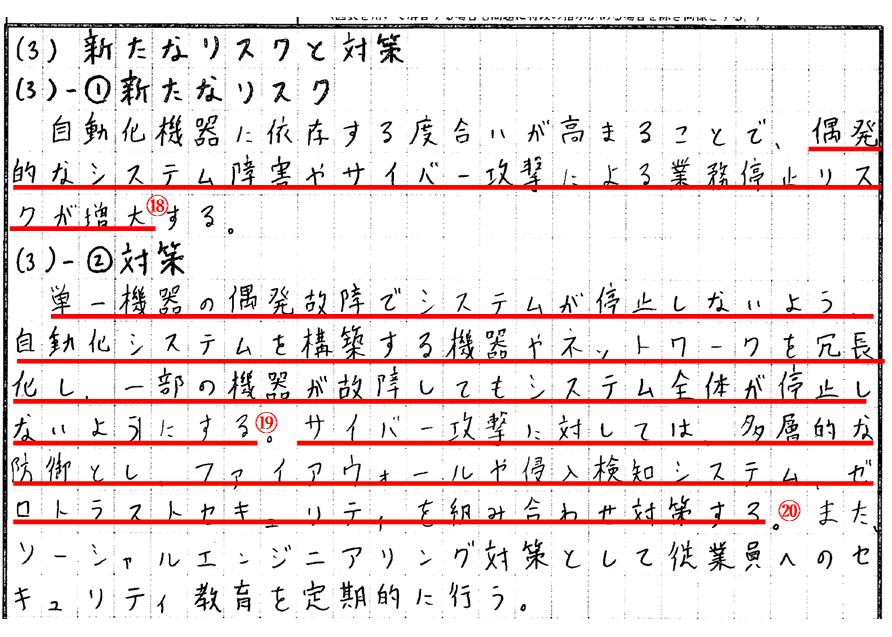 (3) 新たなリスクと対策
(3)-①新たなリスク
自動化機器に依存する度合いが高まることで、偶発
的なシステム障害やサイバー攻撃による業務停止リス
クが増大⑱する。
(3)-②対策
単一機器の偶発故障でシステムが停止しないよう、
自動化システムを構築する機器やネットワークを冗長
化し、一部の機器が故障してもシステム全体が停止し
ないようにする⑲。サイバー攻撃に対しては、多層的な
防御とし、ファイアウォールや侵入検知システム、ゼ
ロトラストセキュリティを組み合わせ対策する。⑳また、
ソーシャルエンジニアリング対策として従業員へのセ
キュリティ教育を定期的に行う。